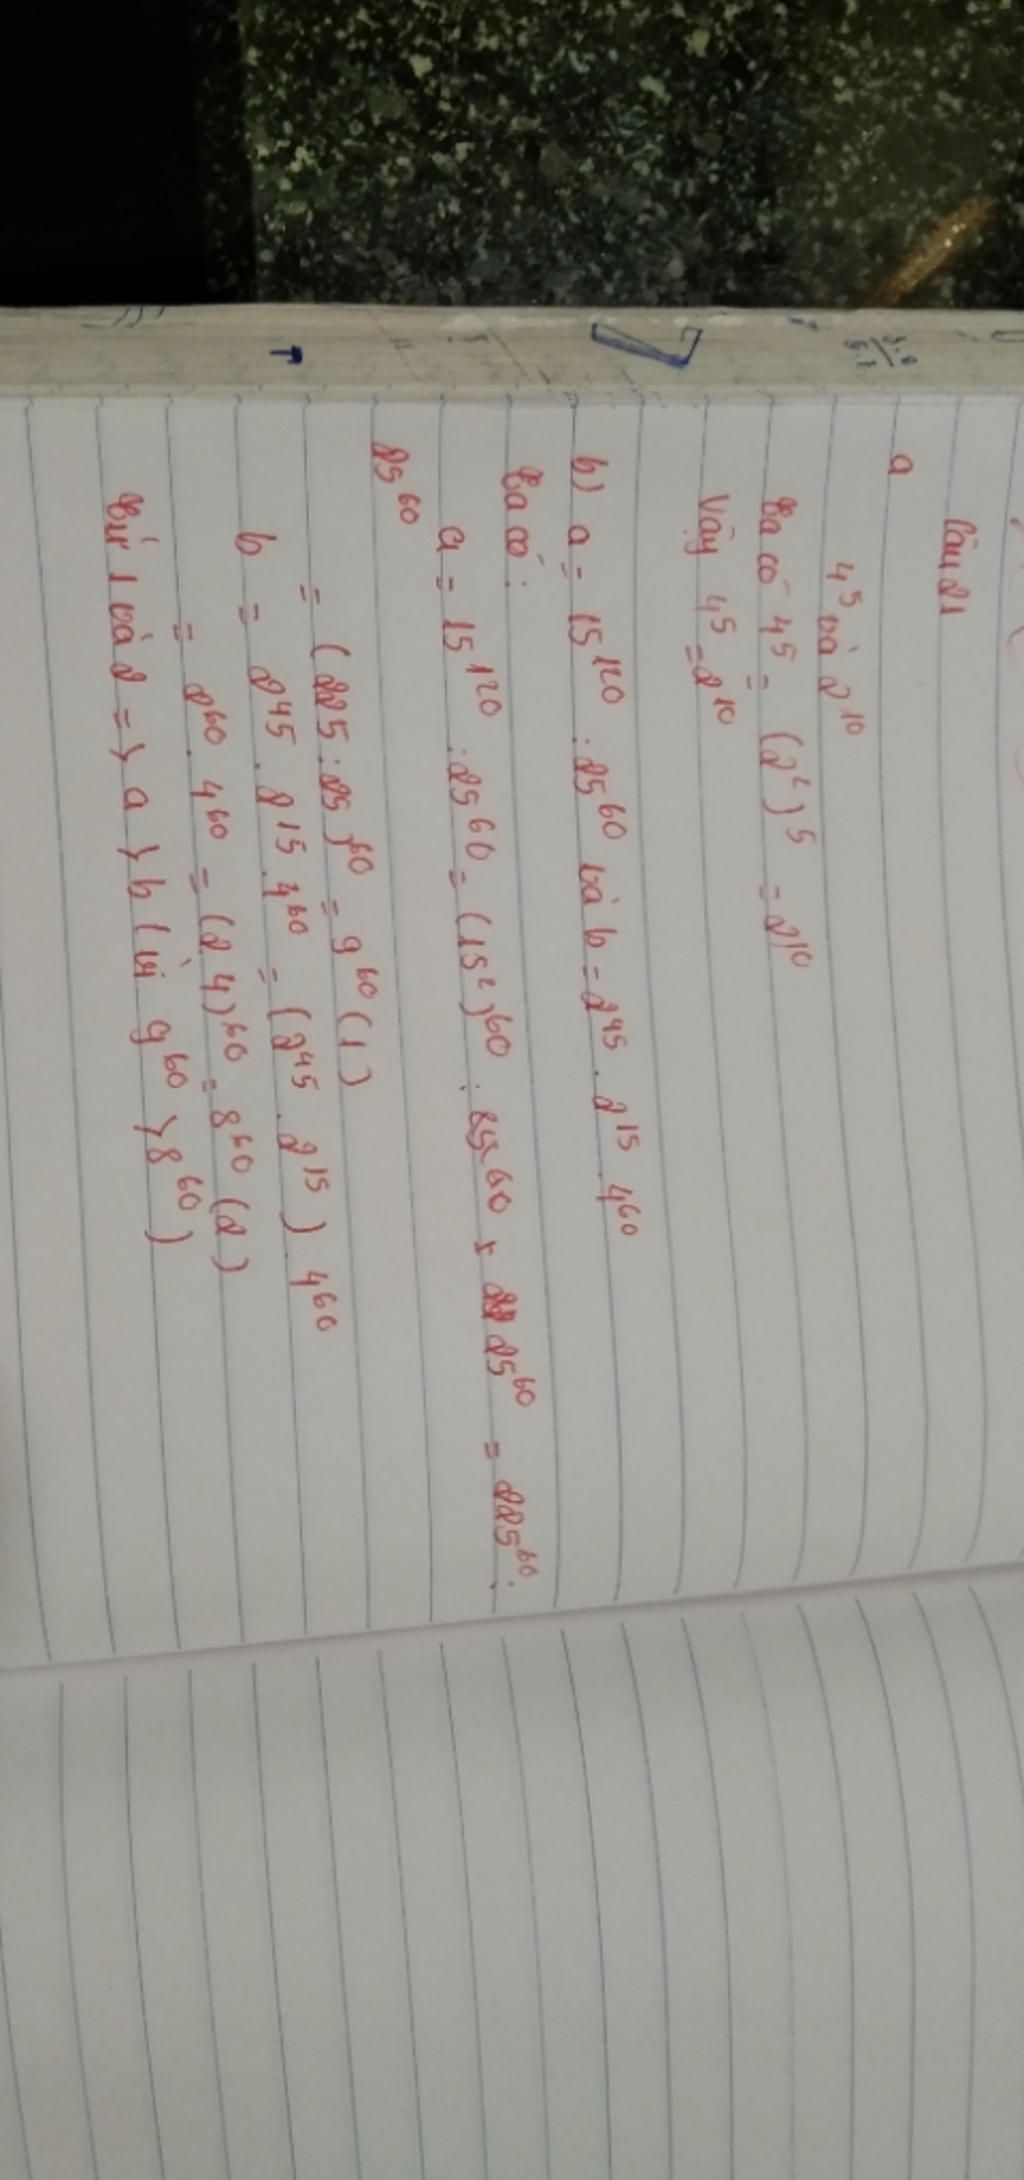 Câu 21
a
4⁵ và 2¹⁰
Ta có 4⁵ = (2²)⁵ = 2¹⁰
Vậy 4⁵ = 2¹⁰
b) a = 15¹²⁰ : 25⁶⁰ và b = 2⁴⁵ . 2¹⁵ . 4⁶⁰
Ta có:
a = 15¹²⁰ : 25⁶⁰ = (15²)⁶⁰ : 25⁶⁰ = 225⁶⁰ :
25⁶⁰
= (225 : 25)⁶⁰ = 9⁶⁰ (1)
b = 2⁴⁵ . 2¹⁵ . 4⁶⁰ = (2⁴⁵ . 2¹⁵) . 4⁶⁰
= 2⁶⁰ . 4⁶⁰ = (2.4)⁶⁰ = 8⁶⁰ (2)
Từ 1 và 2 => a > b (vì 9⁶⁰ > 8⁶⁰)